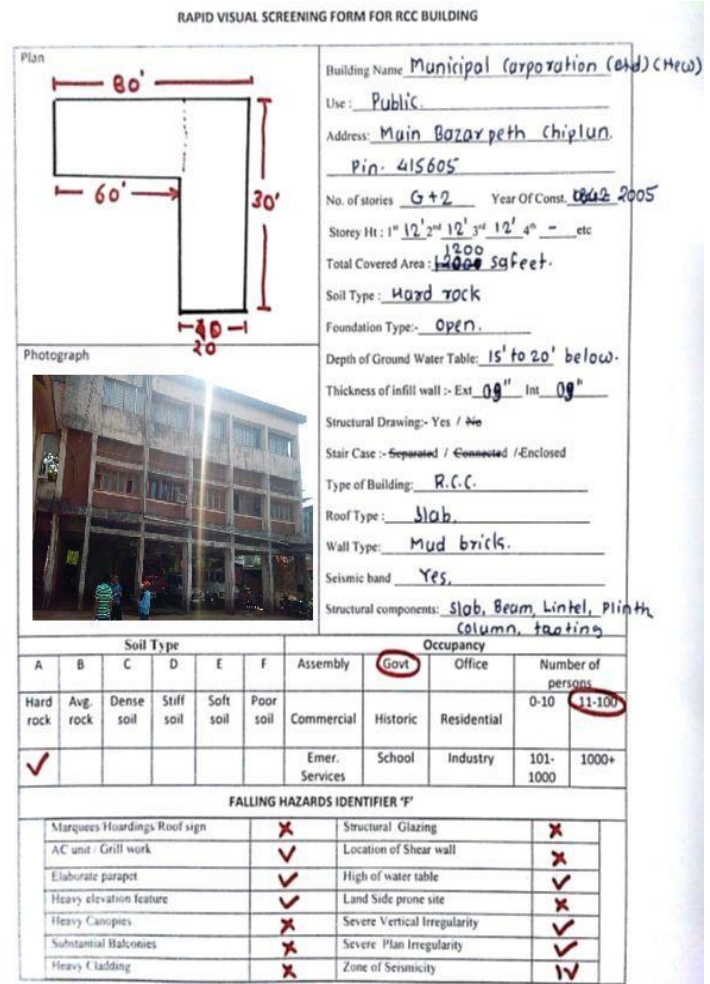 RAPID VISUAL SCREENING FORM FOR RCC BUILDING
Plan
80'
60'
30'
20
Building Name Municipal Corporation (Old) (New)
Use : Public.
Address: Main Bazar peth Chiplun.
Pin. 415605
No. of stories G+2 Year Of Const. 2005
Storey Ht : 1st 12' 2nd 12' 3rd 12' 4th - etc
1200
Total Covered Area : sqfeet.
Soil Type : Hard rock
Foundation Type:- Open.
Depth of Ground Water Table: 15' to 20' below.
Thickness of infill wall :- Ext 09" Int 09"
Structural Drawing:- Yes / No
Stair Case :- Separated / Connected /-Enclosed
Type of Building: R.C.C.
Roof Type : Slab.
Wall Type: Mud bricks.
Seismic band Yes.
Structural components: Slab, Beam, Lintel, Plinth
Column, footing
Photograph
Soil Type Occupancy
A B C D E F Assembly Govt Office Number of
persons
Hard Avg. Dense Stiff Soft Poor 0-10 11-100
rock rock soil soil soil soil Commercial Historic Residential
Emer. School Industry 101- 1000+
Services 1000
FALLING HAZARDS IDENTIFIER 'F'
Marquees/Hoardings/Roof sign X Structural Glazing X
AC unit / Grill work ✓ Location of Shear wall X
Elaborate parapet ✓ High of water table ✓
Heavy elevation feature ✓ Land Side prone site X
Heavy Canopies X Severe Vertical Irregularity ✓
Substantial Balconies X Severe Plan Irregularity ✓
Heavy Cladding X Zone of Seismicity IV